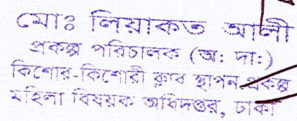 মোঃ লিয়াকত আলী
প্রকল্প পরিচালক (অ: দা:)
কিশোর-কিশোরী ক্লাব স্থাপন প্রকল্প
মহিলা বিষয়ক অধিদপ্তর, ঢাকা